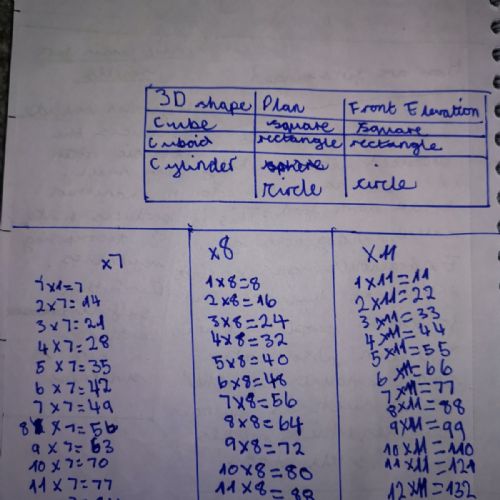 3D shape Plan Front Elevation
Cube square square
Cuboid rectangle rectangle
Cylinder sphere
circle circle
x7 x8 x11
1x1=7 1x8=8 1x11=11
2x7=14 2x8=16 2x11=22
3x7=21 3x8=24 3x11=33
4x7=28 4x8=32 4x11=44
5x7=35 5x8=40 5x11=55
6x7=42 6x8=48 6x11=66
7x7=49 7x8=56 7x11=77
8 x7=56 8x8=64 8x11=88
9x7=63 9x8=72 9x11=99
10x7=70 10x8=80 10x11=110
11x7=77 11x8=88 11x11=121
12x11=132